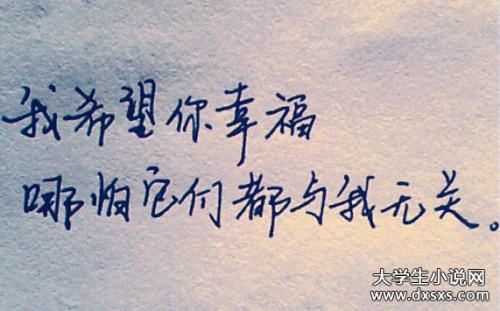 我希望你幸福
哪怕它们都与我无关。
大学生小说网
www.dxsxs.com